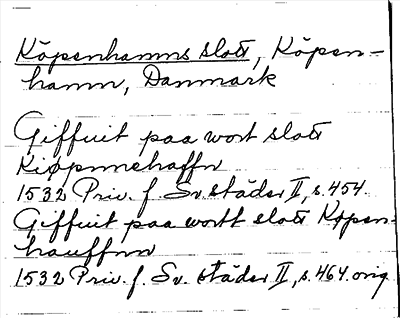 Köpenhamns slott, Köpen-
hamn, Danmark
Giffuit paa wort slott
Kiøpnnehaffn
1532 Priv. f. Sv. städer II, s. 454.
Giffuit paa wortt slott Køpen-
hauffnn
1532 Priv. f. Sv. städer II, s. 464. orig.